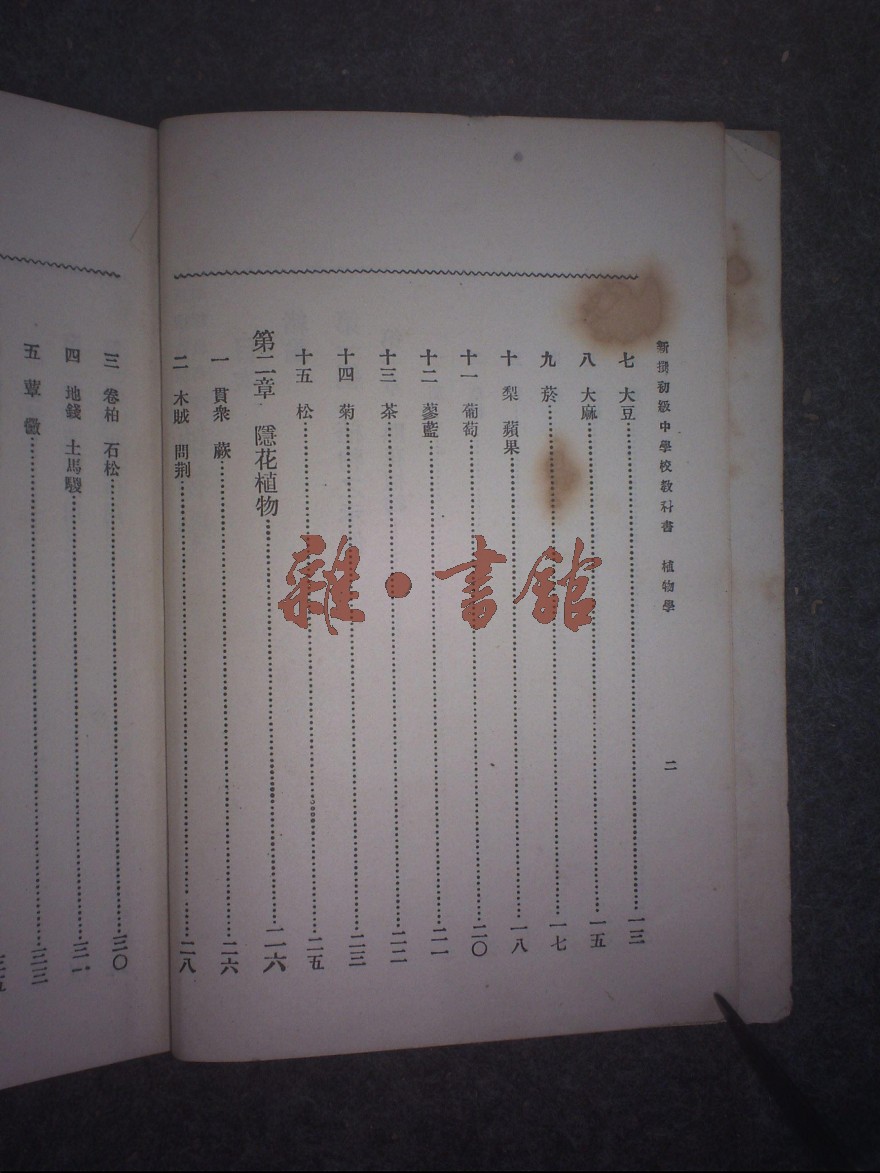 新撰初級中學校教科書 植物學 二
七 大豆 一三
八 大麻 一五
九 菸 一七
十 梨 蘋果 一八
十一 葡萄 二〇
十二 蓼藍 二一
十三 茶 二二
十四 菊 二三
十五 松 二五
第二章 隱花植物 二六
一 貫衆 蕨 二六
二 木賊 問荊 二八
三 卷柏 石松 三〇
四 地錢 土馬騣 三一
五 蕈 黴 三三
雜·書館